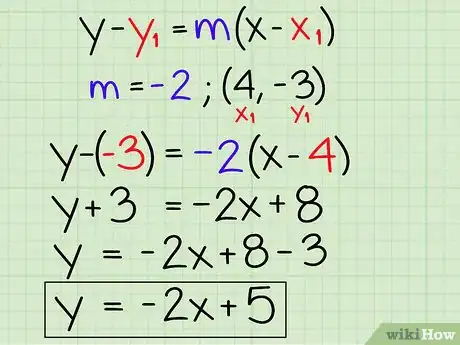 y-y₁ = m(x-x₁)
m = -2 ; (4, -3)
x₁ y₁
y-(-3) = -2(x-4)
y+3 = -2x+8
y = -2x+8-3
y = -2x+5
wikiHow